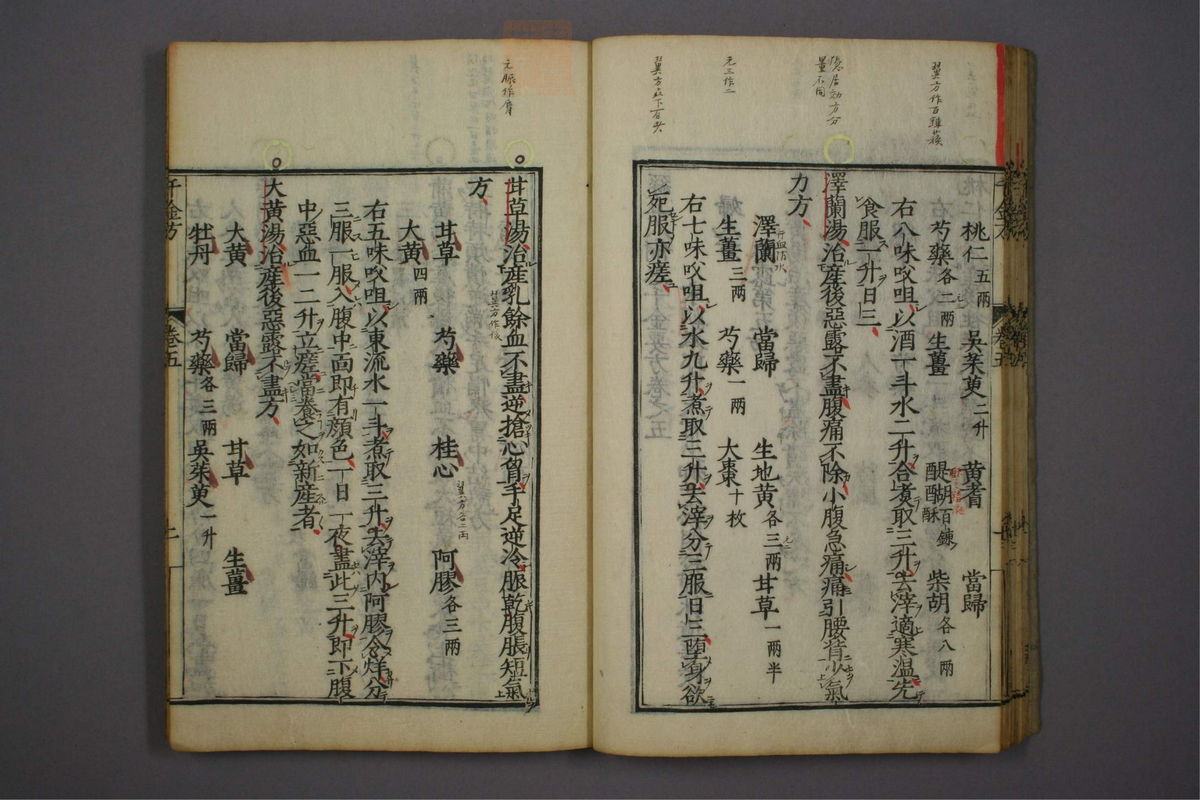 桃仁五兩 吳茱萸二升 黃耆 當歸
芍藥各二兩 生薑 醍醐百鍊酥 柴胡各八兩
右八味㕮咀以酒一斗水二升合煮取三升去滓適寒温先
食服一升日三
澤蘭湯治產後惡露不盡腹痛不除小腹急痛痛引腰背少氣
力方
澤蘭 當歸 生地黃各三兩 甘草一兩半
生薑三兩 芍藥一兩 大棗十枚
右七味㕮咀以水九升煮取三升去滓分三服日三堕身欲
死服亦瘥
翼方作百鍊酥
隱居効方分
量不同
元三作二
千金方 卷五
甘草湯治產乳餘血不盡逆搶心胷手足逆冷脈乾腹脹短氣
方
甘草 芍藥 桂心 阿膠各三兩
大黃四兩
右五味㕮咀以東流水一斗煮取三升去滓内阿膠令烊分
三服一服入腹中面即有顏色一日一夜盡此三升即下腹
中惡血一二升立瘥當養之如新產者
大黃湯治產後惡露不盡方
大黃 當歸 甘草 生薑
牡丹 芍藥各三兩 吳茱萸一升
千金方 卷五